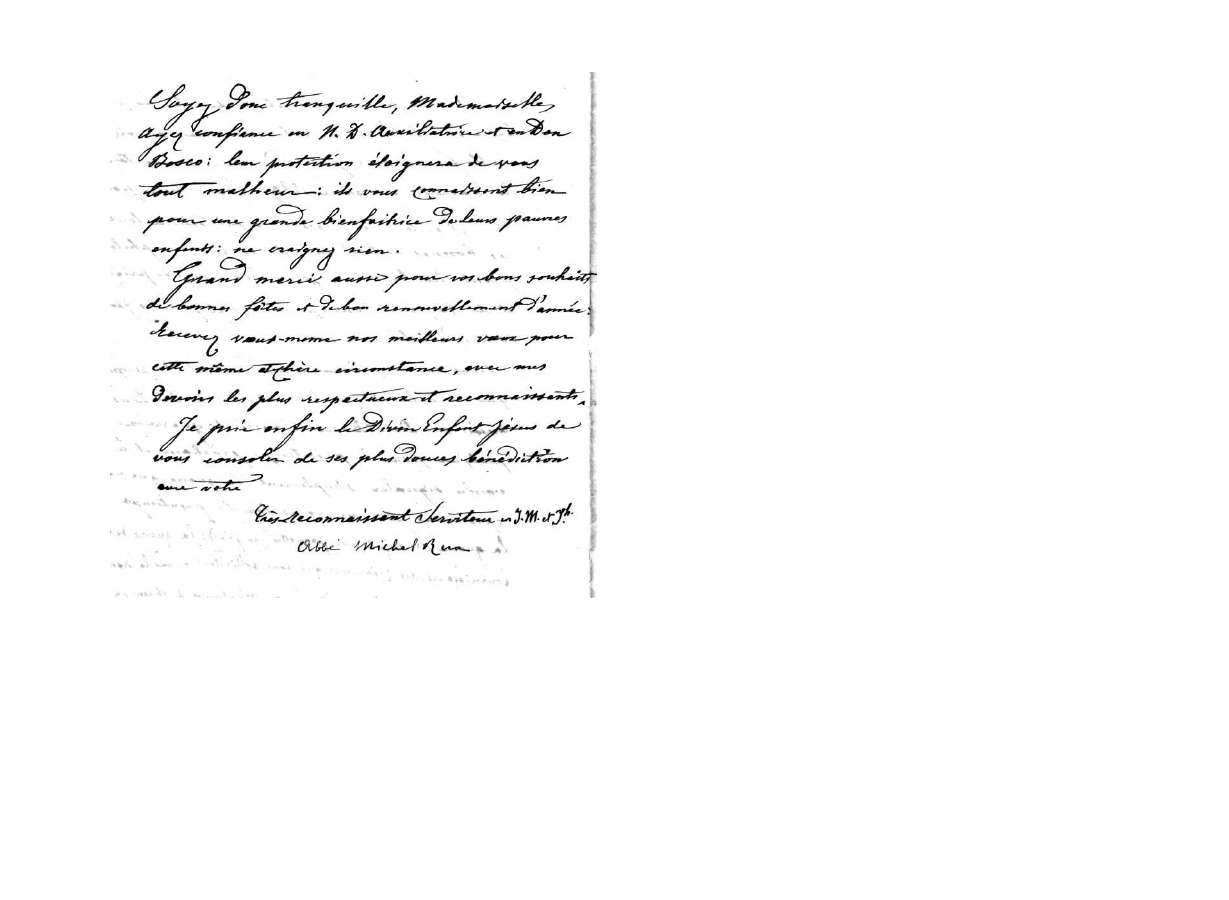 Soyez donc tranquille, Mademoiselle,
ayez confiance en N. D. Auxiliatrice et en Don
Bosco: leur protection éloignera de vous
tout malheur: ils vous connaissent bien
pour une grande bienfaitrice de leurs pauvres
enfants: ne craignez rien.
Grand merci aussi pour vos bons souhaits
de bonnes fêtes et de bon renouvellement d'année:
Recevez vous-meme nos meilleurs vœux pour
cette même et chère circonstance, avec mes
devoirs les plus respectueux et reconnaissants.
Je prie enfin le Divin Enfant Jésus de
vous consoler de ses plus douces bénédiction
votre
très reconnaissant Serviteur en J. M. et Jh.
Abbé Michel Rua